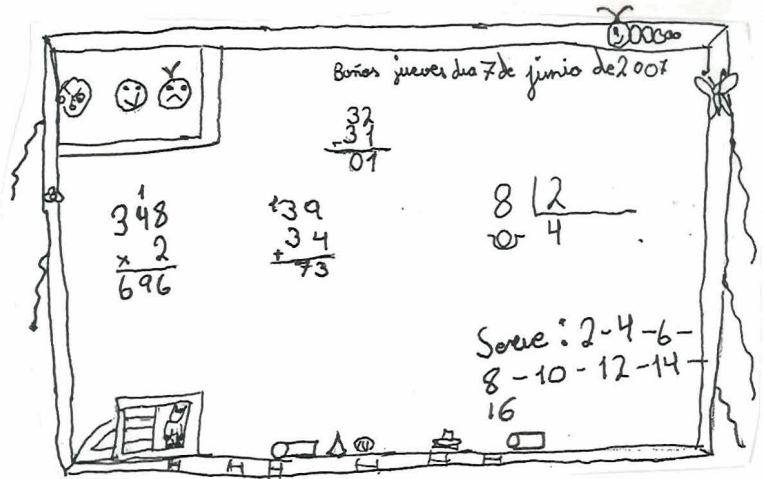 Baños jueves dia 7 de junio de 2007
32
- 31
01
1
348
x 2
696
1
39
+ 34
73
8 | 2
0 4
Serie: 2-4-6-
8-10-12-14-
16